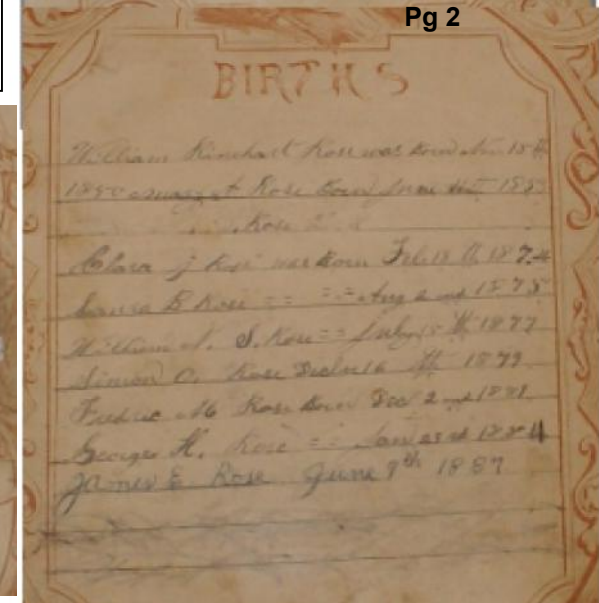 Pg 2
BIRTHS
William Rinehart Rose was Born Nov 15th
1850 Rose Born June 1853
Rose
Clara J Rose was Born Feb 18th 1874
B Rose = = = = Aug 2nd 1875
William N. S. Rose = = July 15th 1877
Simon C. Rose Dec 16th 1879
M Rose Born Dec 2nd 1881
George H. Rose = = Jan 23rd 1884
James E Rose June 9th 1887